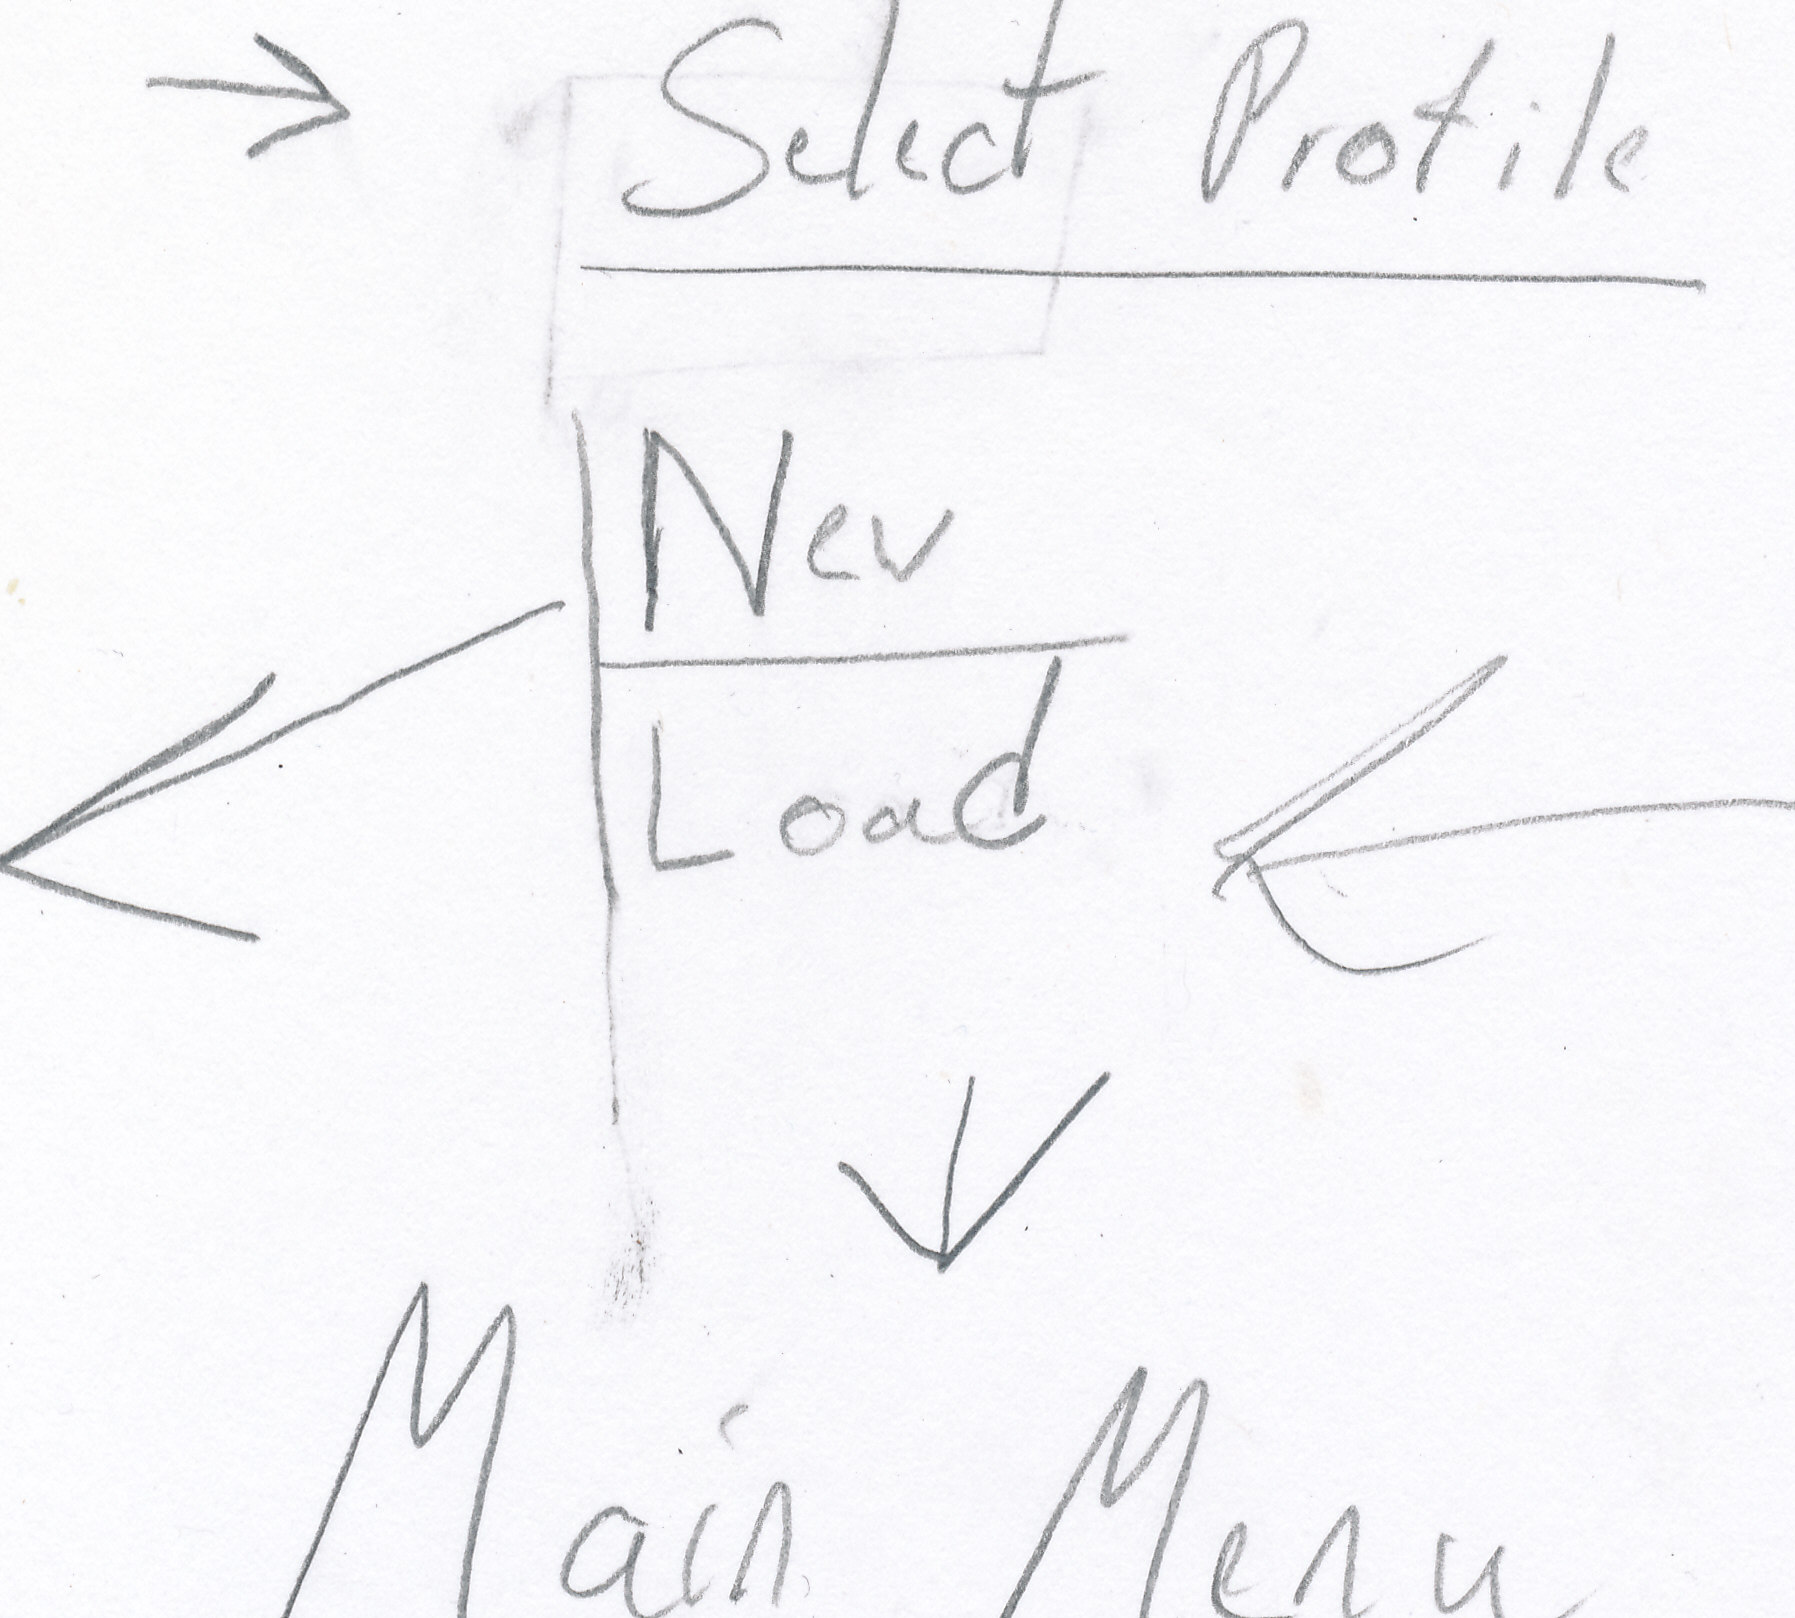 Select Profile
New
Load
Main Menu